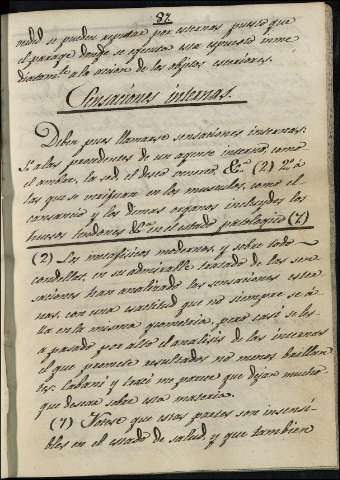 87
medio se pueden reputar por esternas puesto que
el parage donde se efectua esta espuesto inme
diatamte a la accion de los objetos esteriores.
Sensaciones internas.
Deben pues llamarse sensaciones internas:
las procedentes de un agente interno como
el ambre, la sed, el deseo venereo &a (2) 2º á
las que se verifican en los musculos, como el
cansancio y los demas organos incluydos los
huesos tendones &a en el estado patologico (7)
(2) Los metafisicos modernos, y sobre todo
condillac, en su admirable tratado de las sen
saciones han analizado las sensaciones ester
nas, con una exactitud que no siempre se á
lla en la misma geometria, pero casi se les
a pasado por alto el analisis de las internas
el que promete resultados no menos brillan
tes: Cabani y traci me parece que dejan mucho
que desear sobre esta materia.
(7) Dirase que estas partes son insensi-
bles en el estado de salud, y que tambien